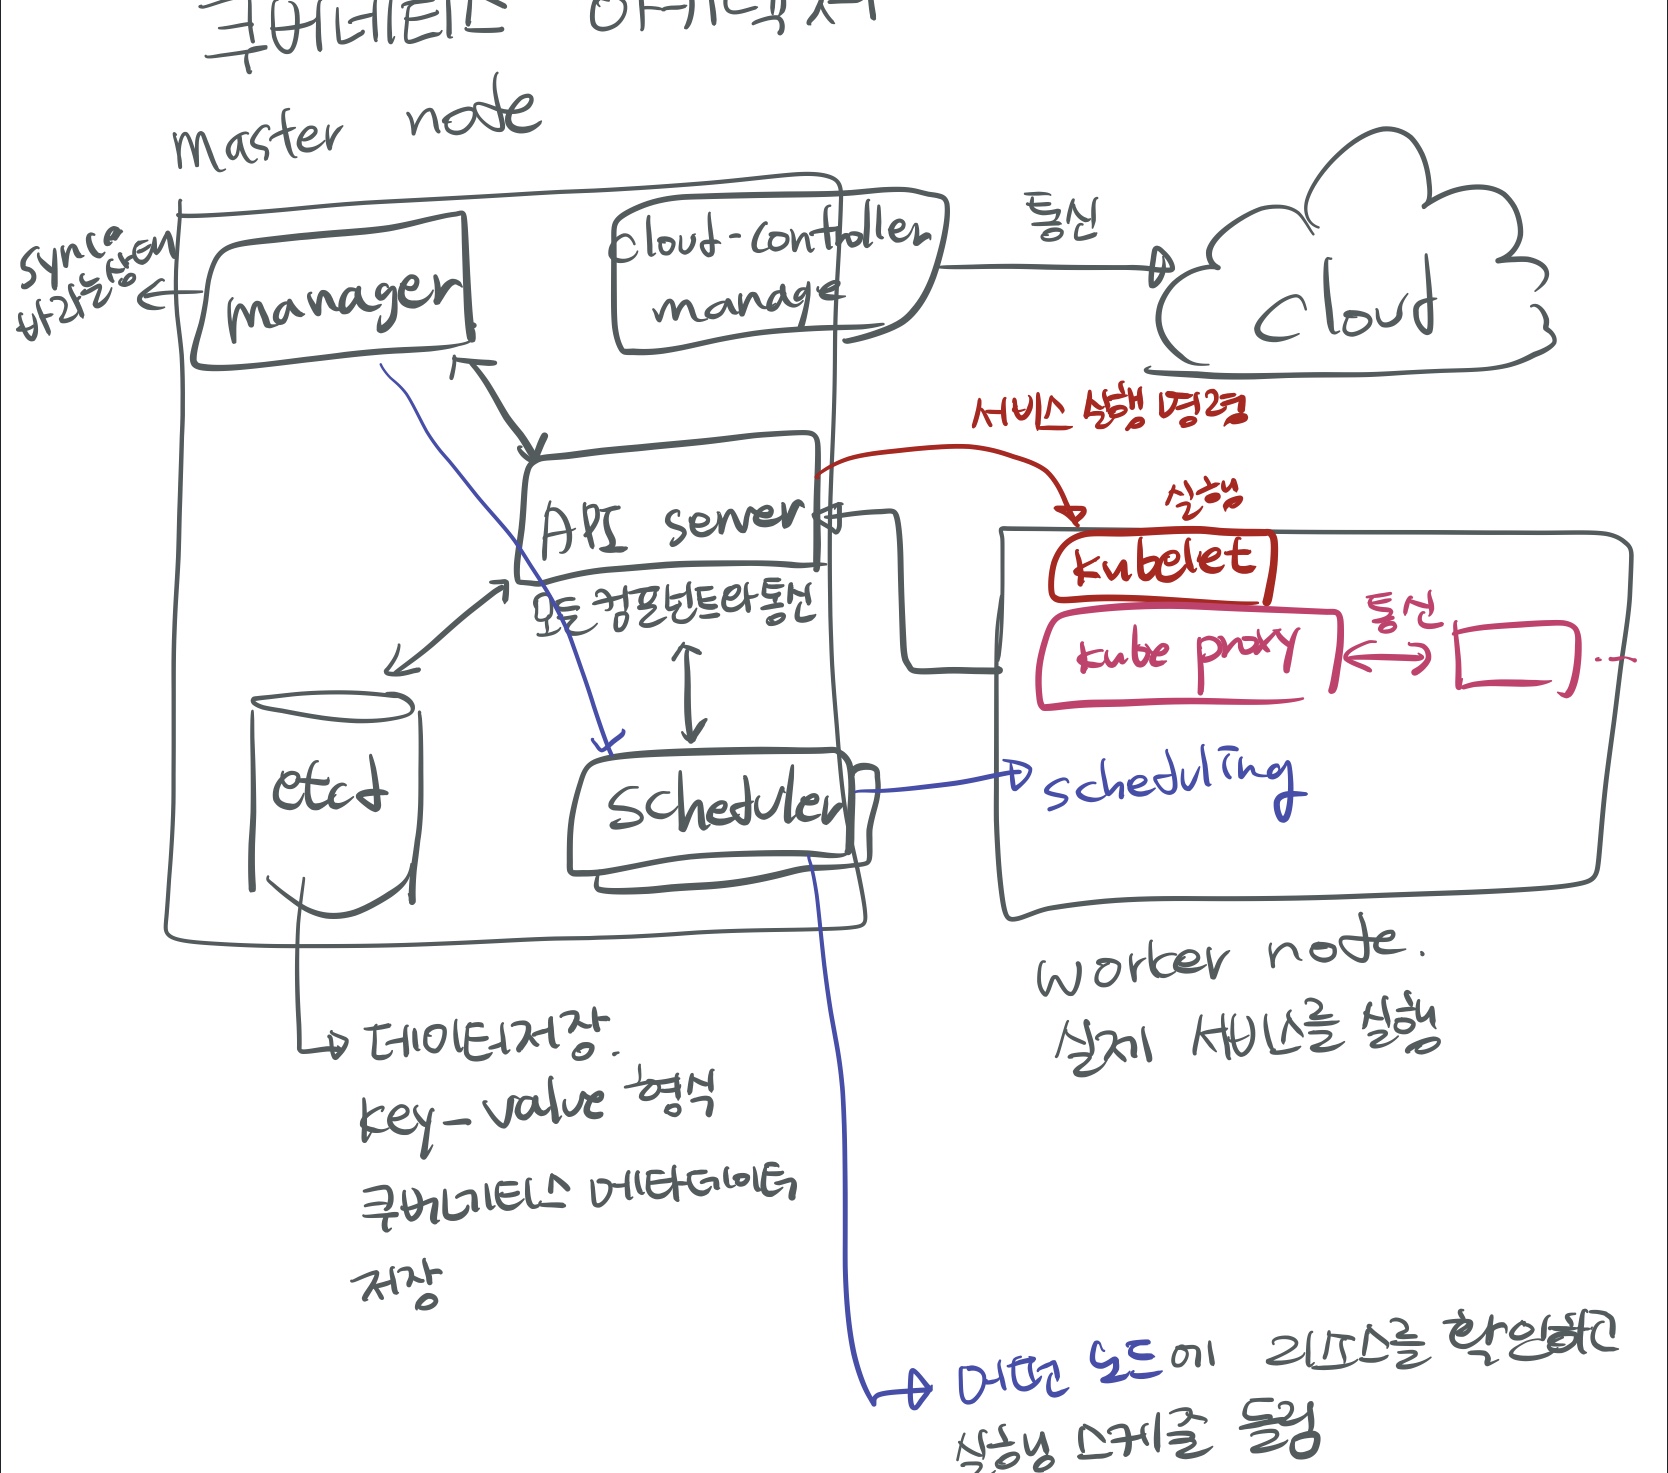 쿠버네티스 아키텍처
master node
sync를
바라는상태
manager
cloud-controller
manage
통신
cloud
서비스 실행 명령
API server
모든 컴포넌트와 통신
실행
kubelet
kube proxy
통신
etcd
scheduler
scheduling
worker node.
실제 서비스를 실행
데이터저장.
key-value 형식
쿠버네티스 메타데이터
저장
어떤 노드에 리소스를 확인하고
실행 스케줄 돌림